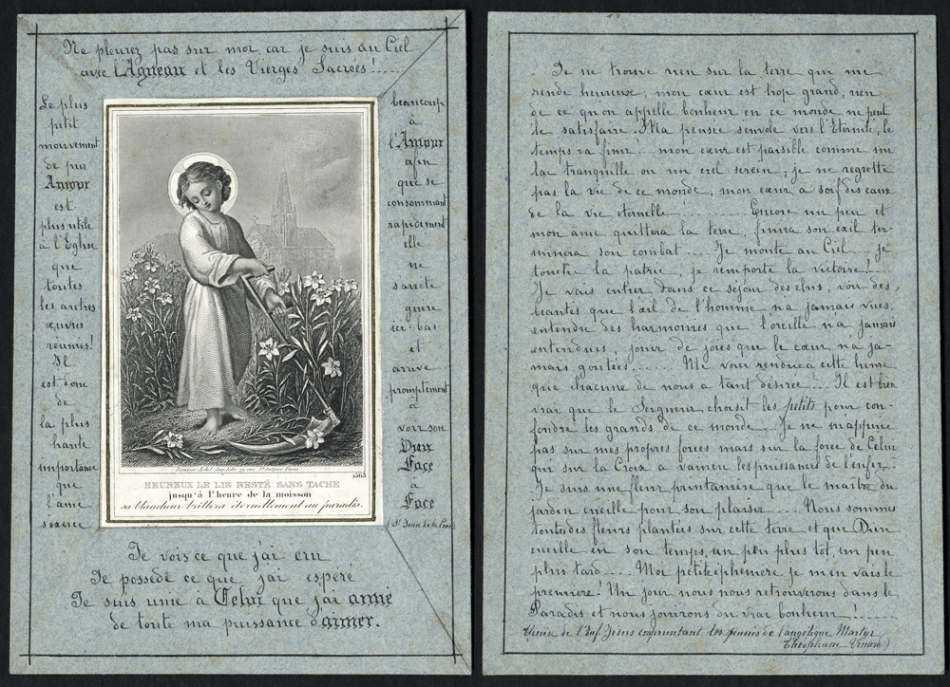 Ne pleurez pas sur moi car je suis au Ciel
avec l'Agneau et les Vierges Sacrées!.....
Le plus
petit
mouvement
de pur
Amour
est
plus utile
à l'Eglise
que
toutes
les autres
œuvres
réunies!
Il
est donc
de
la plus
haute
importance
que
l'âme
s'exerce
beaucoup
à
l'Amour
afin
que se
consommant
rapidement
elle
ne
s'arrête
guère
ici-bas
et
arrive
promptement
à
voir son
Dieu
Face
à
Face
(St Jean de la Croix)
1563
HEUREUX LE LIS RESTÉ SANS TACHE
jusqu'à l'heure de la moisson
sa blancheur brillera éternellement au paradis.
Je vois ce que j'ai cru
Je possède ce que j'ai espéré
Je suis unie à Celui que j'ai aimé
de toute ma puissance d'aimer.
Je ne trouve rien sur la terre qui me
rende heureuse; mon cœur est trop grand, rien
de ce qu'on appelle bonheur en ce monde ne peut
le satisfaire. Ma pensée s'envole vers l'Eternité, le
temps va finir!... mon cœur est paisible comme un
lac tranquille ou un ciel serein; je ne regrette
pas la vie de ce monde, mon cœur a soif des eaux
de la vie éternelle!........ Encore un peu et
mon âme quittera la terre, finira son exil ter-
minera son combat.... Je monte au Ciel... je
touche la patrie, je remporte la victoire!....
Je vais entrer dans ce séjour des élus, voir des
beautés que l'œil de l'homme n'a jamais vues,
entendre des harmonies que l'oreille n'a jamais
entendues, jouir de joies que le cœur n'a ja-
mais goûtées....... Me voici rendue à cette heure
que chacune de nous a tant désirée... Il est bien
vrai que le Seigneur choisit les petits pour con-
fondre les grands de ce monde... Je ne m'appuie
pas sur mes propres forces mais sur la force de Celui
qui sur la Croix a vaincu les puissances de l'enfer.
Je suis une fleur printanière que le maître du
jardin cueille pour son plaisir..... Nous sommes
toutes des fleurs plantées sur cette terre et que Dieu
cueille en son temps, un peu plus tôt, un peu
plus tard.... Moi petite éphémère je m'en vais la
première! Un jour nous nous retrouverons dans le
Paradis et nous jouirons du vrai bonheur!.....
Thérèse de l'Enf. Jésus empruntant les pensées de l'angélique Martyr
Théophane Vénard)